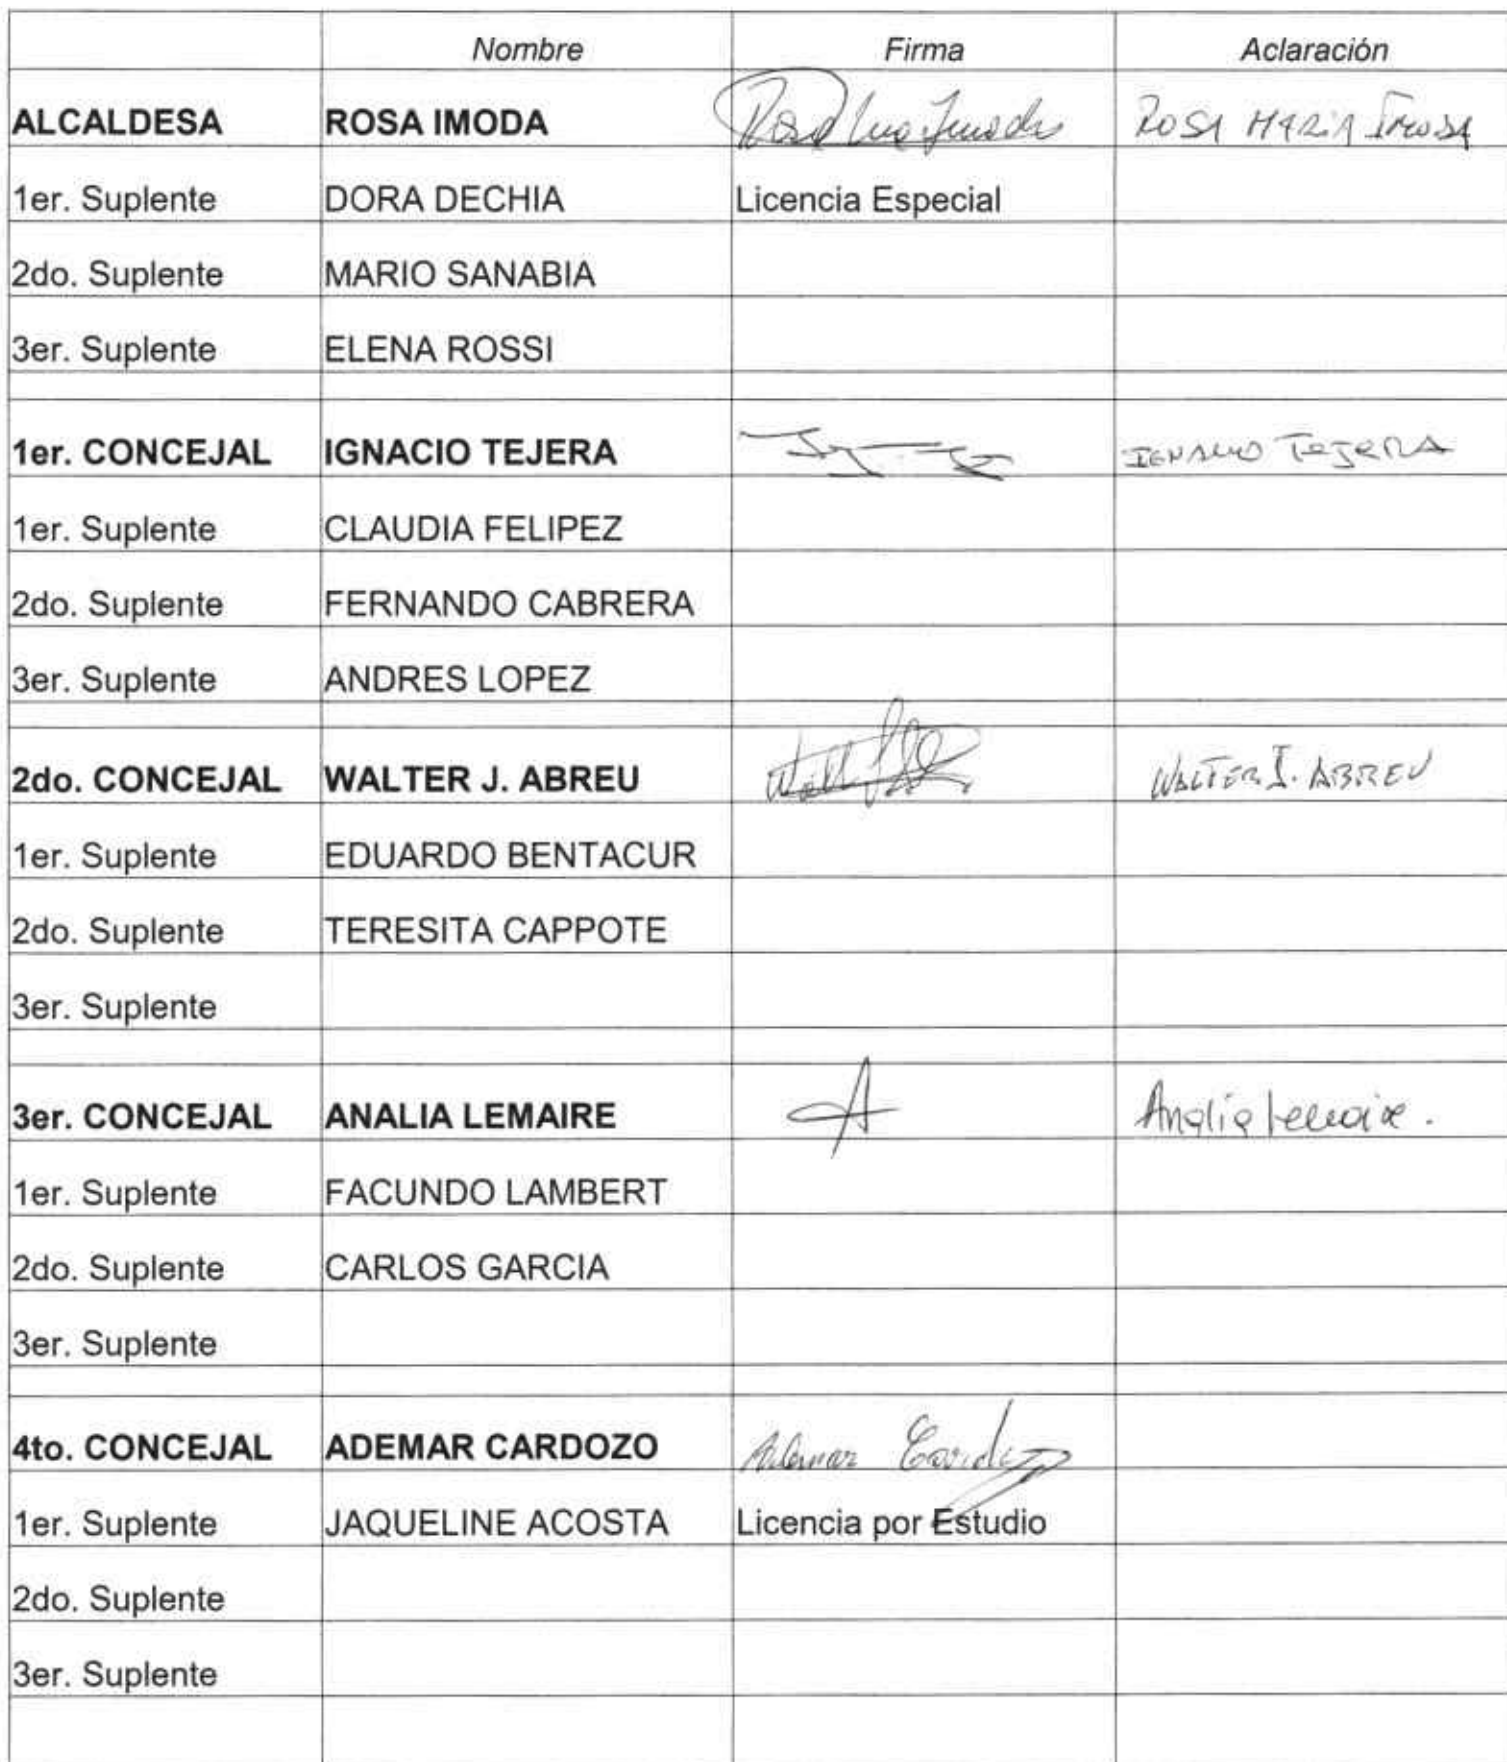 Nombre Firma Aclaración
ALCALDESA ROSA IMODA ROSA MARIA IMODA
1er. Suplente DORA DECHIA Licencia Especial
2do. Suplente MARIO SANABIA
3er. Suplente ELENA ROSSI
1er. CONCEJAL IGNACIO TEJERA IGNACIO TEJERA
1er. Suplente CLAUDIA FELIPEZ
2do. Suplente FERNANDO CABRERA
3er. Suplente ANDRES LOPEZ
2do. CONCEJAL WALTER J. ABREU WALTER J. ABREU
1er. Suplente EDUARDO BENTACUR
2do. Suplente TERESITA CAPPOTE
3er. Suplente
3er. CONCEJAL ANALIA LEMAIRE A Analia Lemaire.
1er. Suplente FACUNDO LAMBERT
2do. Suplente CARLOS GARCIA
3er. Suplente
4to. CONCEJAL ADEMAR CARDOZO Ademar
1er. Suplente JAQUELINE ACOSTA Licencia por Estudio
2do. Suplente
3er. Suplente